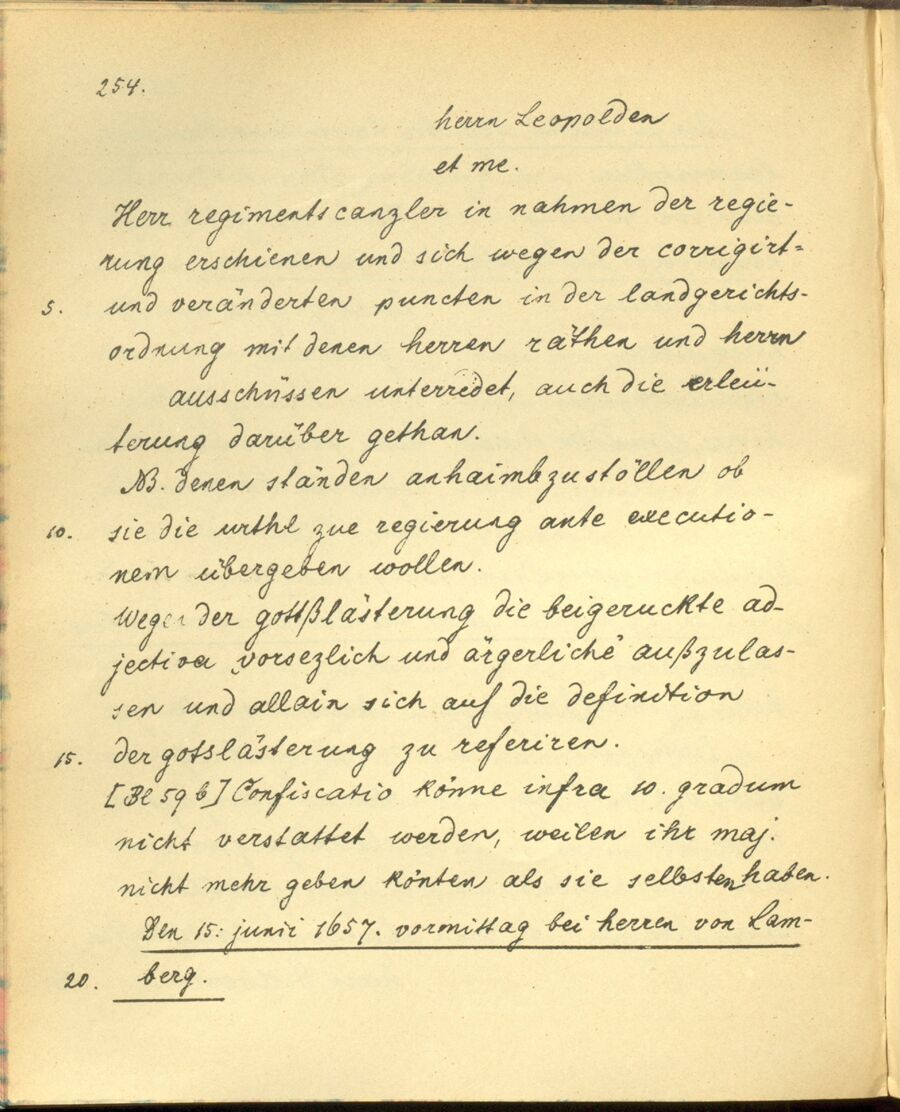 254.
herrn Leopolden
et me.
Herr regimentscanzler in nahmen der regie-
rung erschienen und sich wegen der corrigirt-
5. und veränderten puncten in der landgerichts-
ordnung mit denen herren räthen und herrn
ausschüssen unterredet, auch die erleü-
terung darüber gethan.
NB. denen ständen anhaimbzustöllen ob
10. sie die urthl zue regierung ante executio-
nem übergeben wollen.
Wegen der gottßlästerung die beigeruckte ad-
jectiva „vorsezlich und ärgerliche" außzulas-
sen und allain sich auf die definition
15. der gotslästerung zu referiren.
[Bl 59 b] Confiscatio könne infra 10. gradum
nicht verstattet werden, weilen ihr maj.
nicht mehr geben könten als sie selbsten haben.
Den 15: junii 1657. vormittag bei herren von Lam-
20. berg.